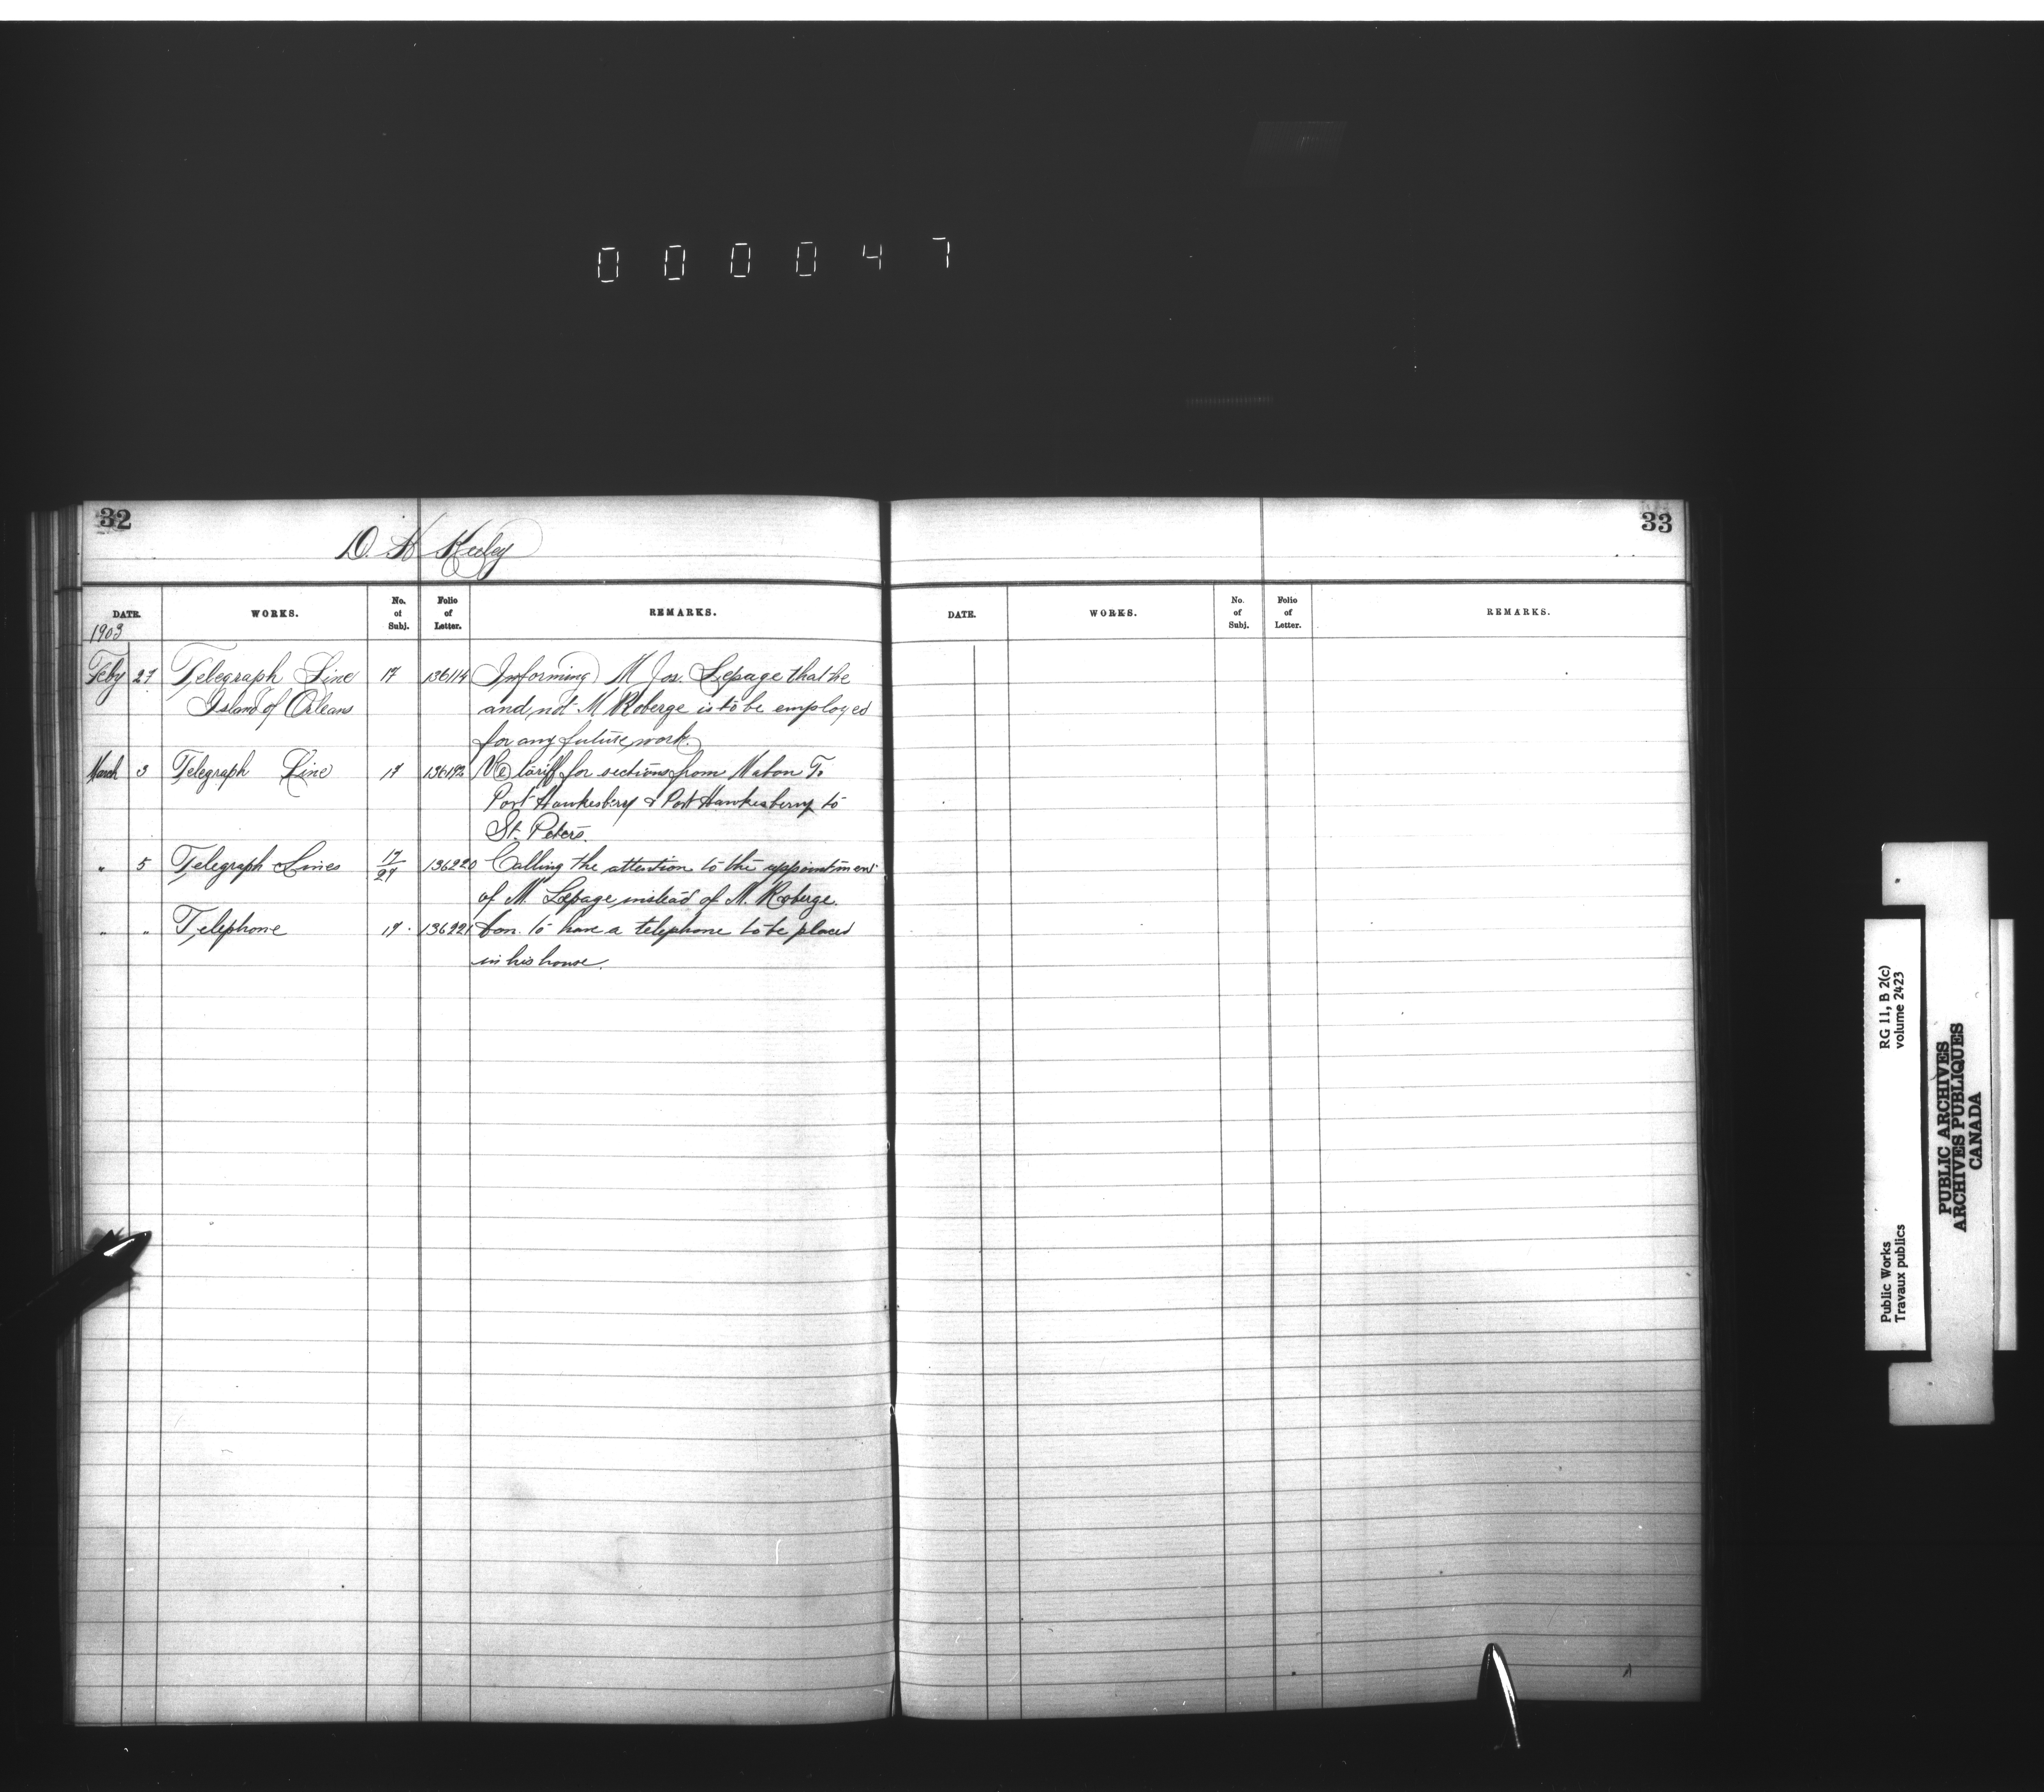 000047
32
D. H Keeley
DATE. WORKS. No. of Subj. Folio of Letter. REMARKS.
1903
Feby 27 Telegraph Line 17 136114 Informing M Jos. Lepage that he
Island of Orleans and not M Roberge is to be employed
for any future work.
March 3 Telegraph Line 17 136192 Re tariff for sections from Mabon To
Port Hawkesbery & Port Hawkesberry to
St. Peters.
" 5 Telegraph Lines 17/27 136220 Calling the attention to the appointment
of M. Lepage instead of M. Roberge.
" " Telephone 17. 136221 to have a telephone to be placed
in his house.
33
DATE. WORKS. No. of Subj. Folio of Letter. REMARKS.
Public Works RG 11, B 2(c)
Travaux publics volume 2423
PUBLIC ARCHIVES
ARCHIVES PUBLIQUES
CANADA